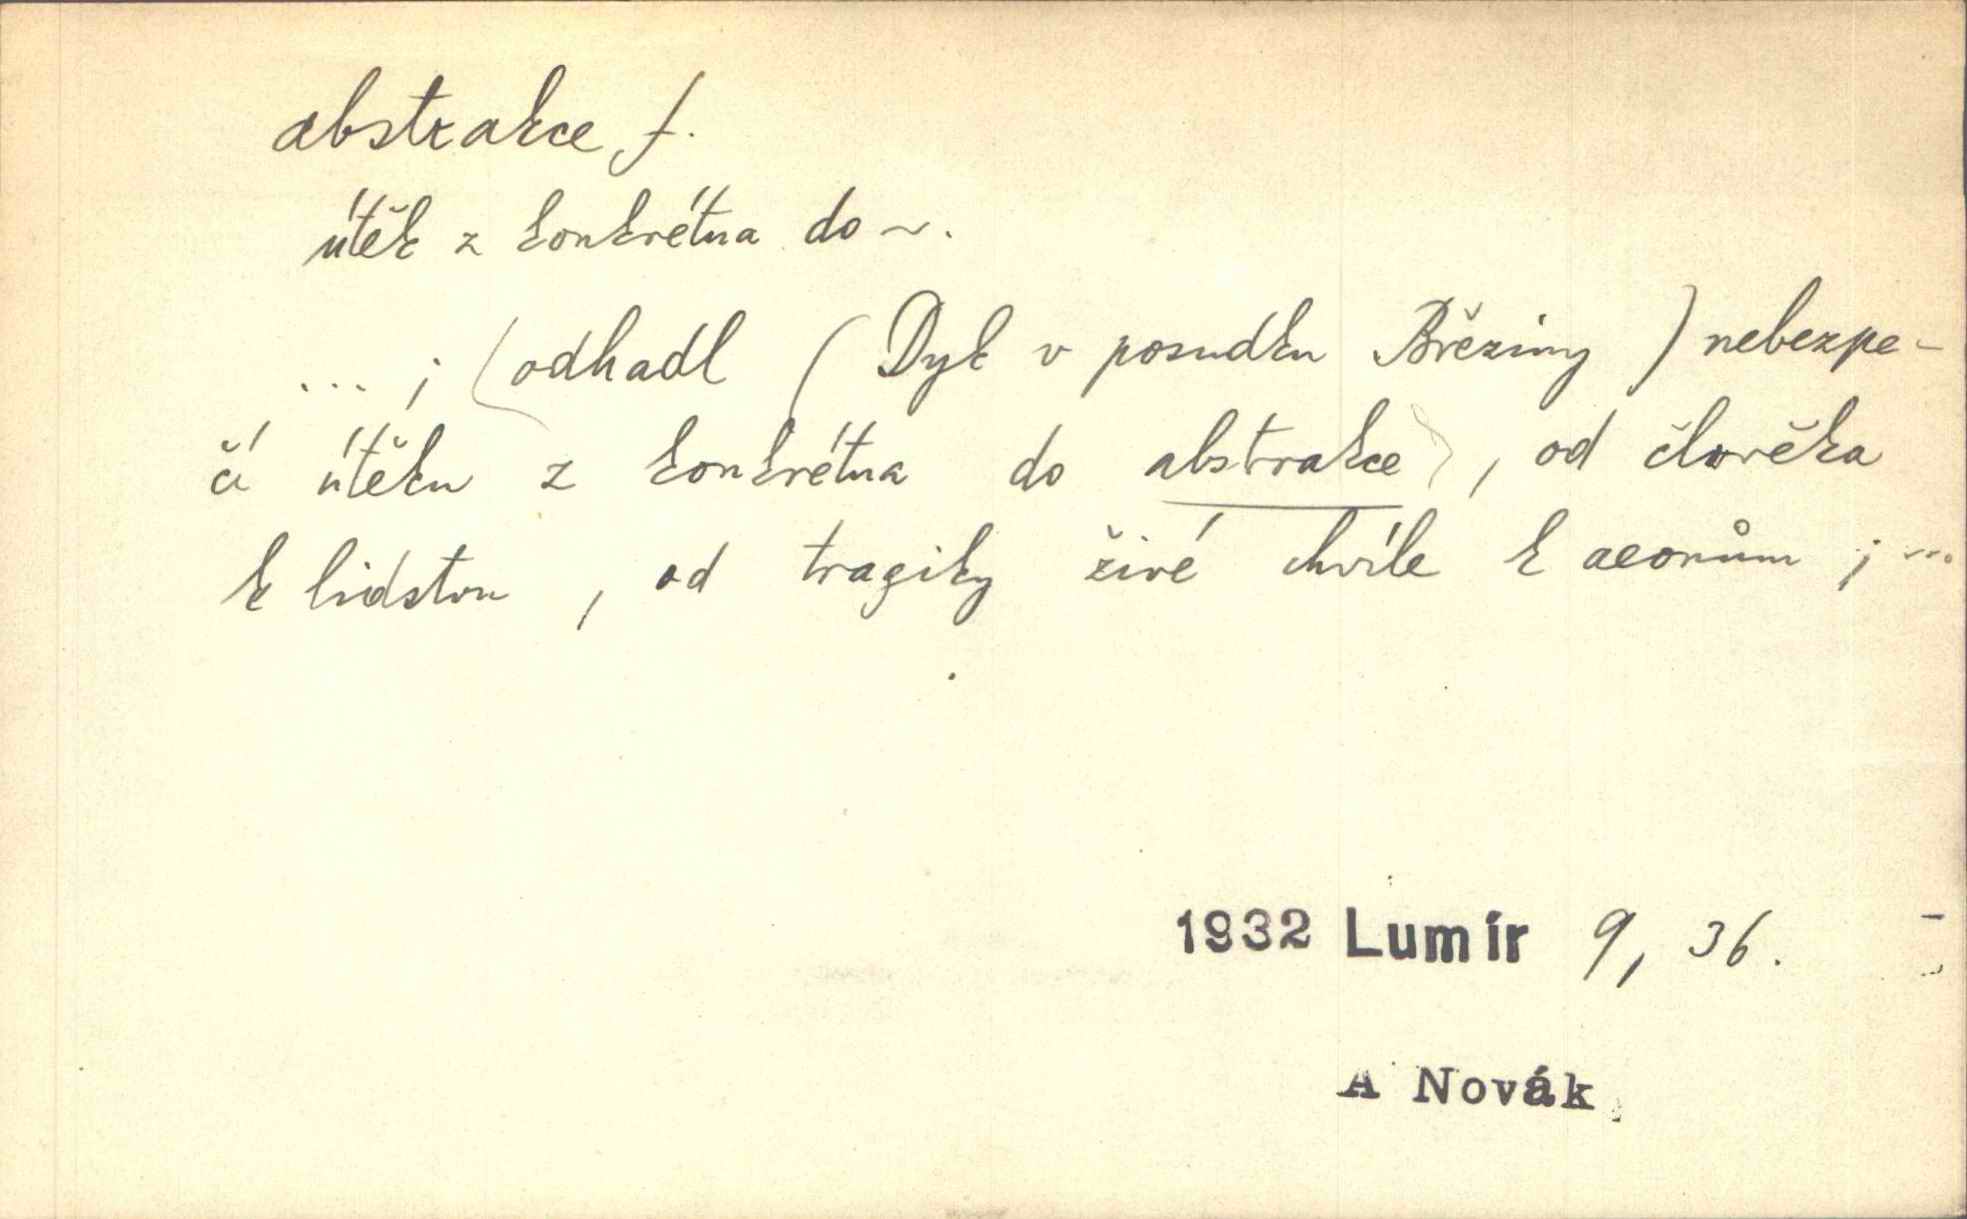 abstrakce f.
útěk z konkrétna do ~.
... ; (odhadl (Dyk v posudku Březiny) nebezpe-
čí útěku z konkrétna do abstrakce), od člověka
k lidstvu, od tragiky živé chvíle k aeonům; ...
1932 Lumír 9, 36.
A Novák